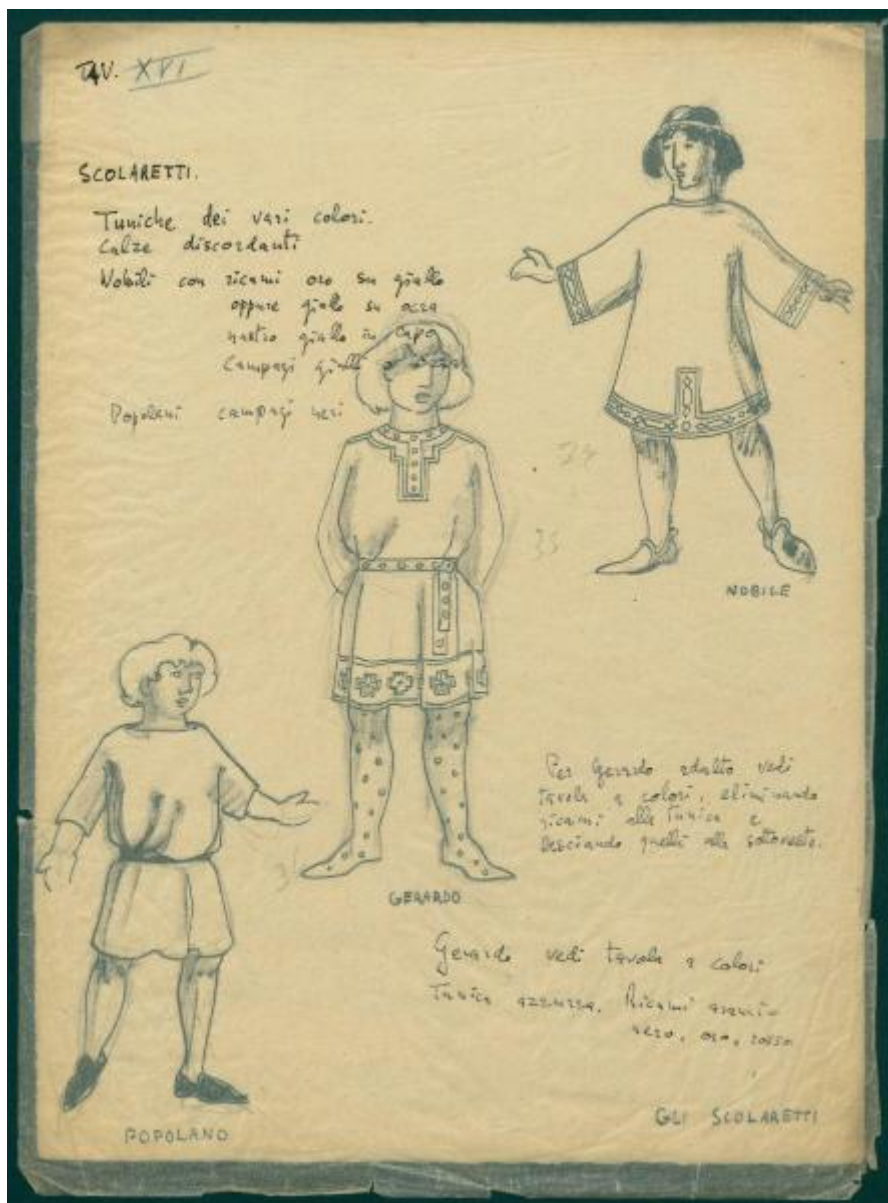 TAV. XVI
SCOLARETTI.
Tuniche dei vari colori.
Calze discordanti
Nobili con ricami oro su giallo
oppure giallo su ocra
nastro giallo in capo
Campagi gialli
Popolani campagi neri
34
33
NOBILE
Per Gerardo adulto vedi
tavola a colori, eliminando
ricami alla tunica e
lasciando quelli alla sottoveste.
GERARDO
Gerardo vedi tavola a colori
Tunica azzurra. Ricami arancio
nero, oro, rosso
GLI SCOLARETTI
POPOLANO